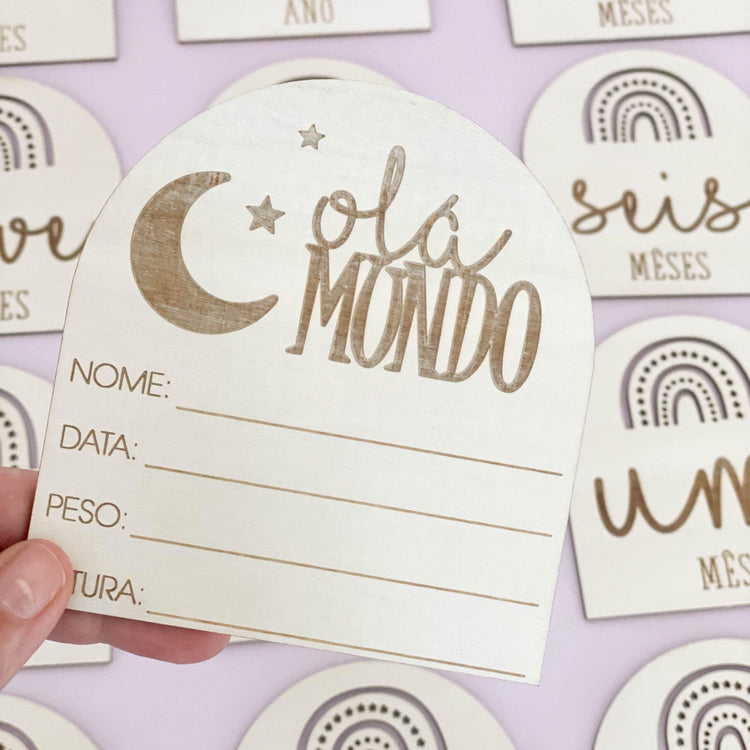 ES
ANO
MESES
olá
MUNDO
NOME:
DATA:
PESO:
TURA:
ve
ES
seis
MÊSES
um
MÊS